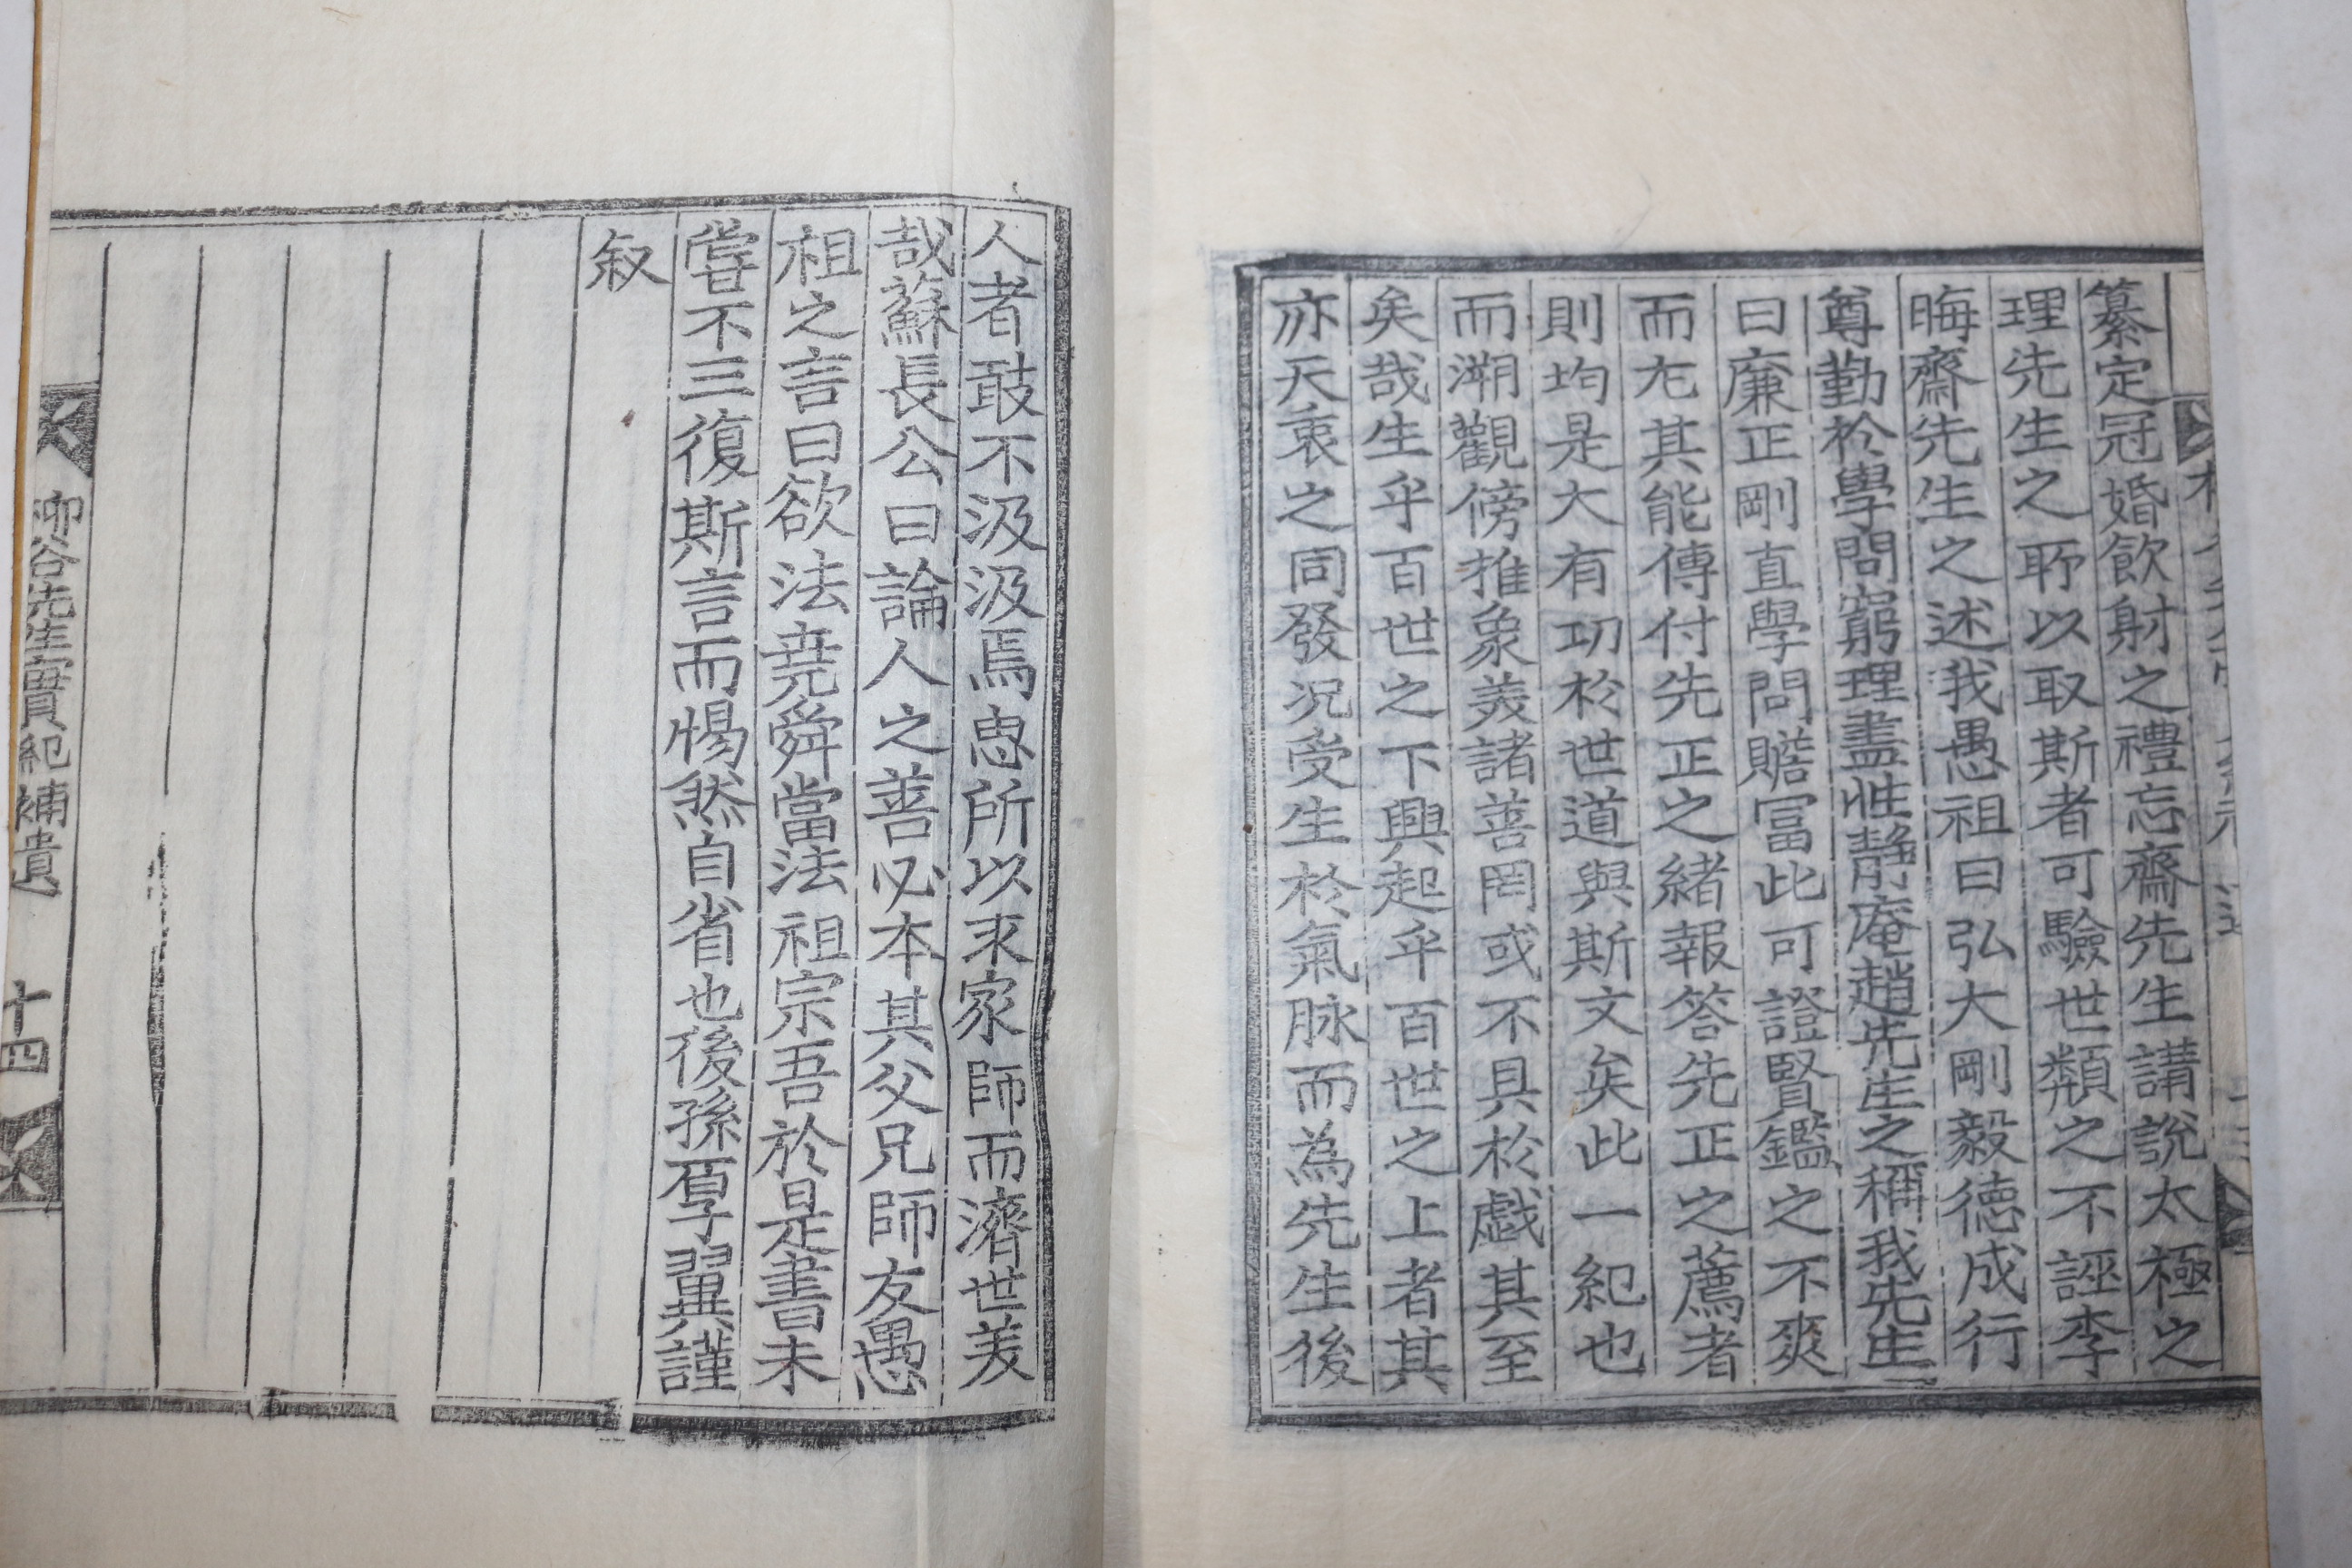 纂定冠婚飮射之禮忘齋先生講說太極之
理先生之所以取斯者可驗世類之不誣李
晦齋先生之述我愚祖曰弘大剛毅德成行
尊勤於學問窮理盡性靜庵趙先生之稱我先生
曰廉正剛直學問贍富此可證賢鑑之不爽
而尤其能傳付先正之緖報答先正之薦者
則均是大有功於世道與斯文矣此一紀也
而溯觀傍推象美諸善罔或不具於戱其至
矣哉生乎百世之下興起乎百世之上者其
亦天衷之同發况受生於氣脉而為先生後
人者敢不汲汲焉思所以求家師而濟世美
哉蘇長公曰論人之善必本其父兄師友愚
祖之言曰欲法堯舜當法祖宗吾於是書未
嘗不三復斯言而惕然自省也後孫厚翼謹
叙
柳谷先生實紀補遺 十四